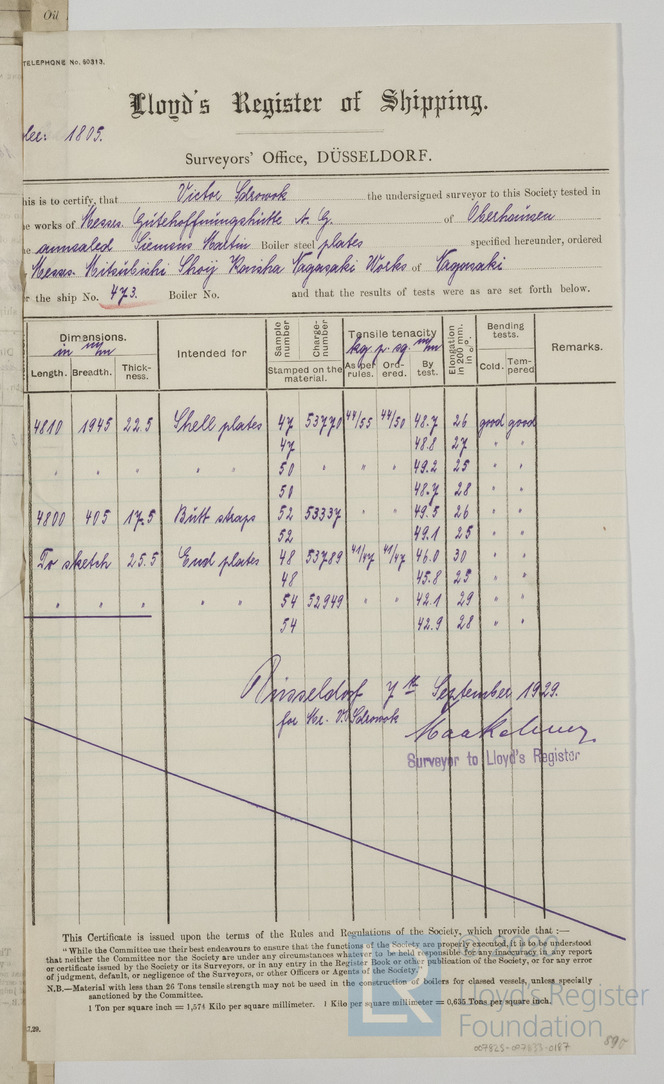 Oil
TELEPHONE No. 60313.
Lloyd's Register of Shipping.
1805.
Surveyors' Office, DÜSSELDORF.
his is to certify, that Victor Sdrowok the undersigned surveyor to this Society tested in
e works of Messrs. Gutehoffnungshütte A. G. of Oberhausen
e annealed Siemens Martin Boiler steel plates specified hereunder, ordered
Messrs. Mitsubishi Shoji Kaisha Nagasaki Works of Nagasaki
r the ship No. 473. Boiler No. and that the results of tests were as are set forth below.
Dimensions. in m/m Intended for Sample number Charge-number Tensile tenacity kg p. sq. m/m Elongation in 200 mm. in %. Bending tests. Remarks.
Length. Breadth. Thick-ness. Stamped on the material. As per rules. Ord-ered. By test. Cold. Tem-pered
4810 1945 22.5 Shell plates 47 53770 44/55 44/50 48.7 26 good good
47 48.8 27 " "
" " " " " 50 " " " 49.2 25 " "
50 48.7 28 " "
4800 405 17.5 Butt straps 52 53337 " " 49.5 26 " "
52 49.1 25 " "
To sketch 25.5 End plates 48 53789 41/47 41/47 46.0 30 " "
48 45.8 25 " "
" " " " " 54 52949 " " 42.1 29 " "
54 42.9 28 " "
Düsseldorf 7th September 1929.
for Mr. V. Sdrowok
Surveyor to Lloyd's Register
This Certificate is issued upon the terms of the Rules and Regulations of the Society, which provide that :—
"While the Committee use their best endeavours to ensure that the functions of the Society are properly executed, it is to be understood
that neither the Committee nor the Society are under any circumstances whatever to be held responsible for any inaccuracy in any report
or certificate issued by the Society or its Surveyors, or in any entry in the Register Book or other publication of the Society, or for any error
of judgment, default, or negligence of the Surveyors, or other Officers or Agents of the Society."
N.B.—Material with less than 26 Tons tensile strength may not be used in the construction of boilers for classed vessels, unless specially
sanctioned by the Committee.
1 Ton per square inch = 1,574 Kilo per square millimetre. 1 Kilo per square millimetre = 0,635 Tons per square inch.
7.29.
© 2020
LR
Lloyd's Register
Foundation
007825-007833-0187